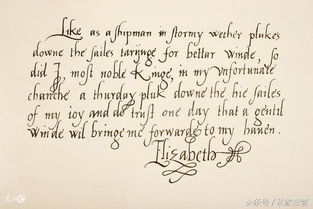 Like as a shipman in stormy wether plukes
downe the sailes tarijnge for bettar winde, so
did I, most noble Kinge, in my vnfortunate
chanche a thurday pluk downe the hie sailes
of my ioy and do trust one day that a gentil
winde wil bringe me forwarde to my hauen.
Elizabeth
头条号 / 私家总管